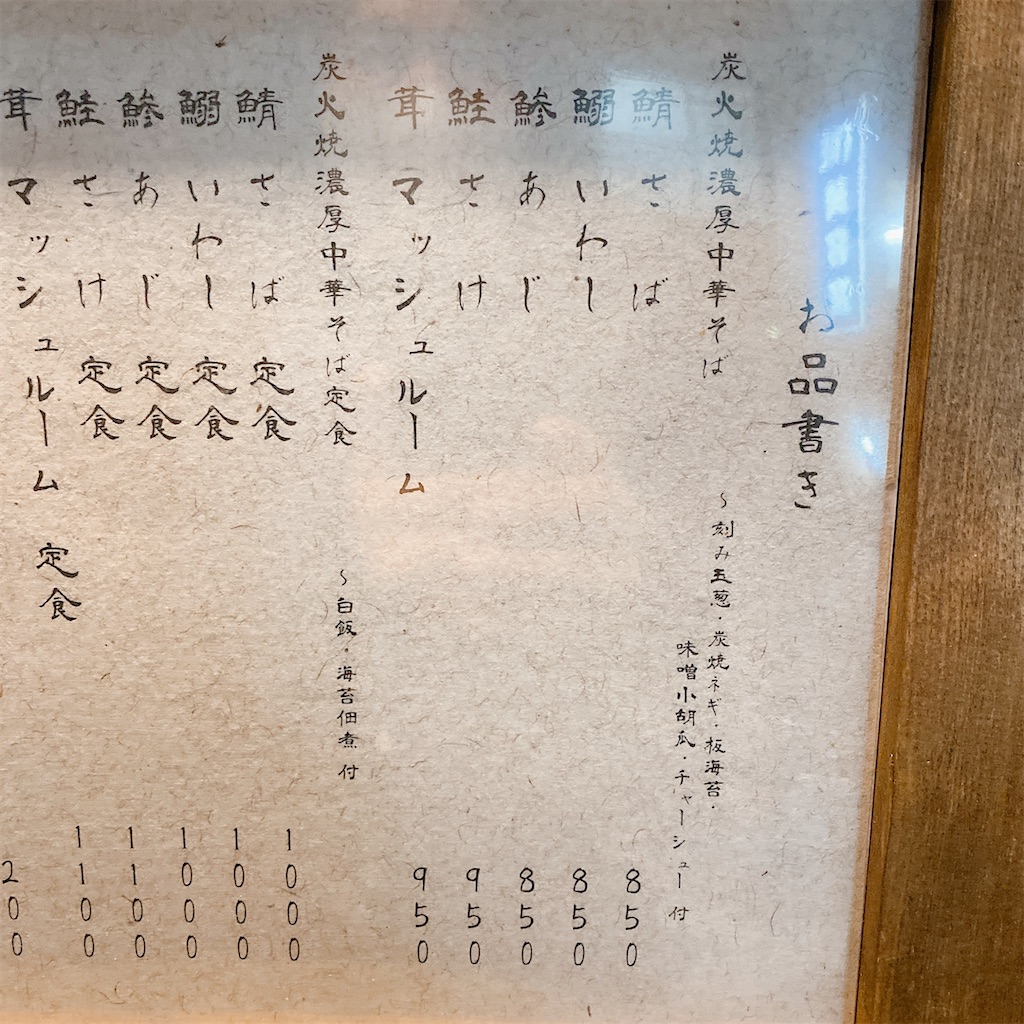 お品書き
炭火焼濃厚中華そば 〜刻み玉葱・炭焼ネギ・板海苔・
味噌小胡瓜・チャーシュー付
鯖 さば 850
鰯 いわし 850
鯵 あじ 850
鮭 さけ 950
茸 マッシュルーム 950
炭火焼濃厚中華そば定食 〜白飯・海苔佃煮付
鯖 さば 定食 1000
鰯 いわし 定食 1000
鯵 あじ 定食 1000
鮭 さけ 定食 1100
茸 マッシュルーム 定食 1100
200